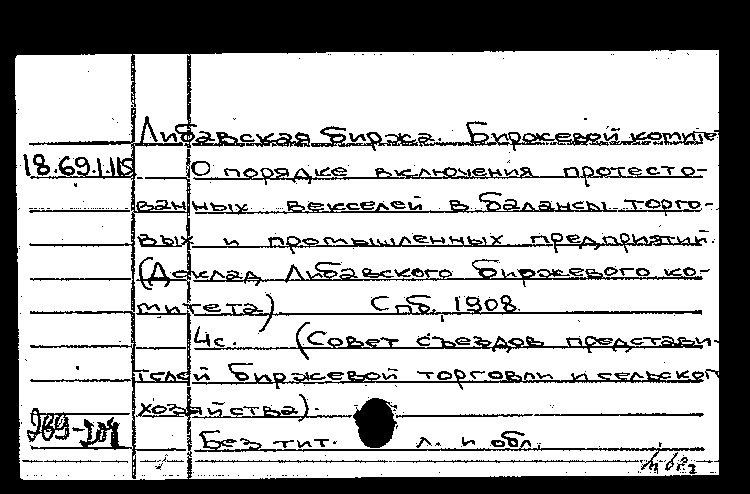 Либавская биржа. Биржевой комите
18.69.1.115 О порядке включения протесто-
ванных векселей в балансы торго-
вых и промышленных предприятий.
(Доклад Либавского биржевого ко-
митета) Спб, 1908
4с. (Совет съездов представи-
телей биржевой торговли и сельског
хозяйства).
Без тит. л. и обл.